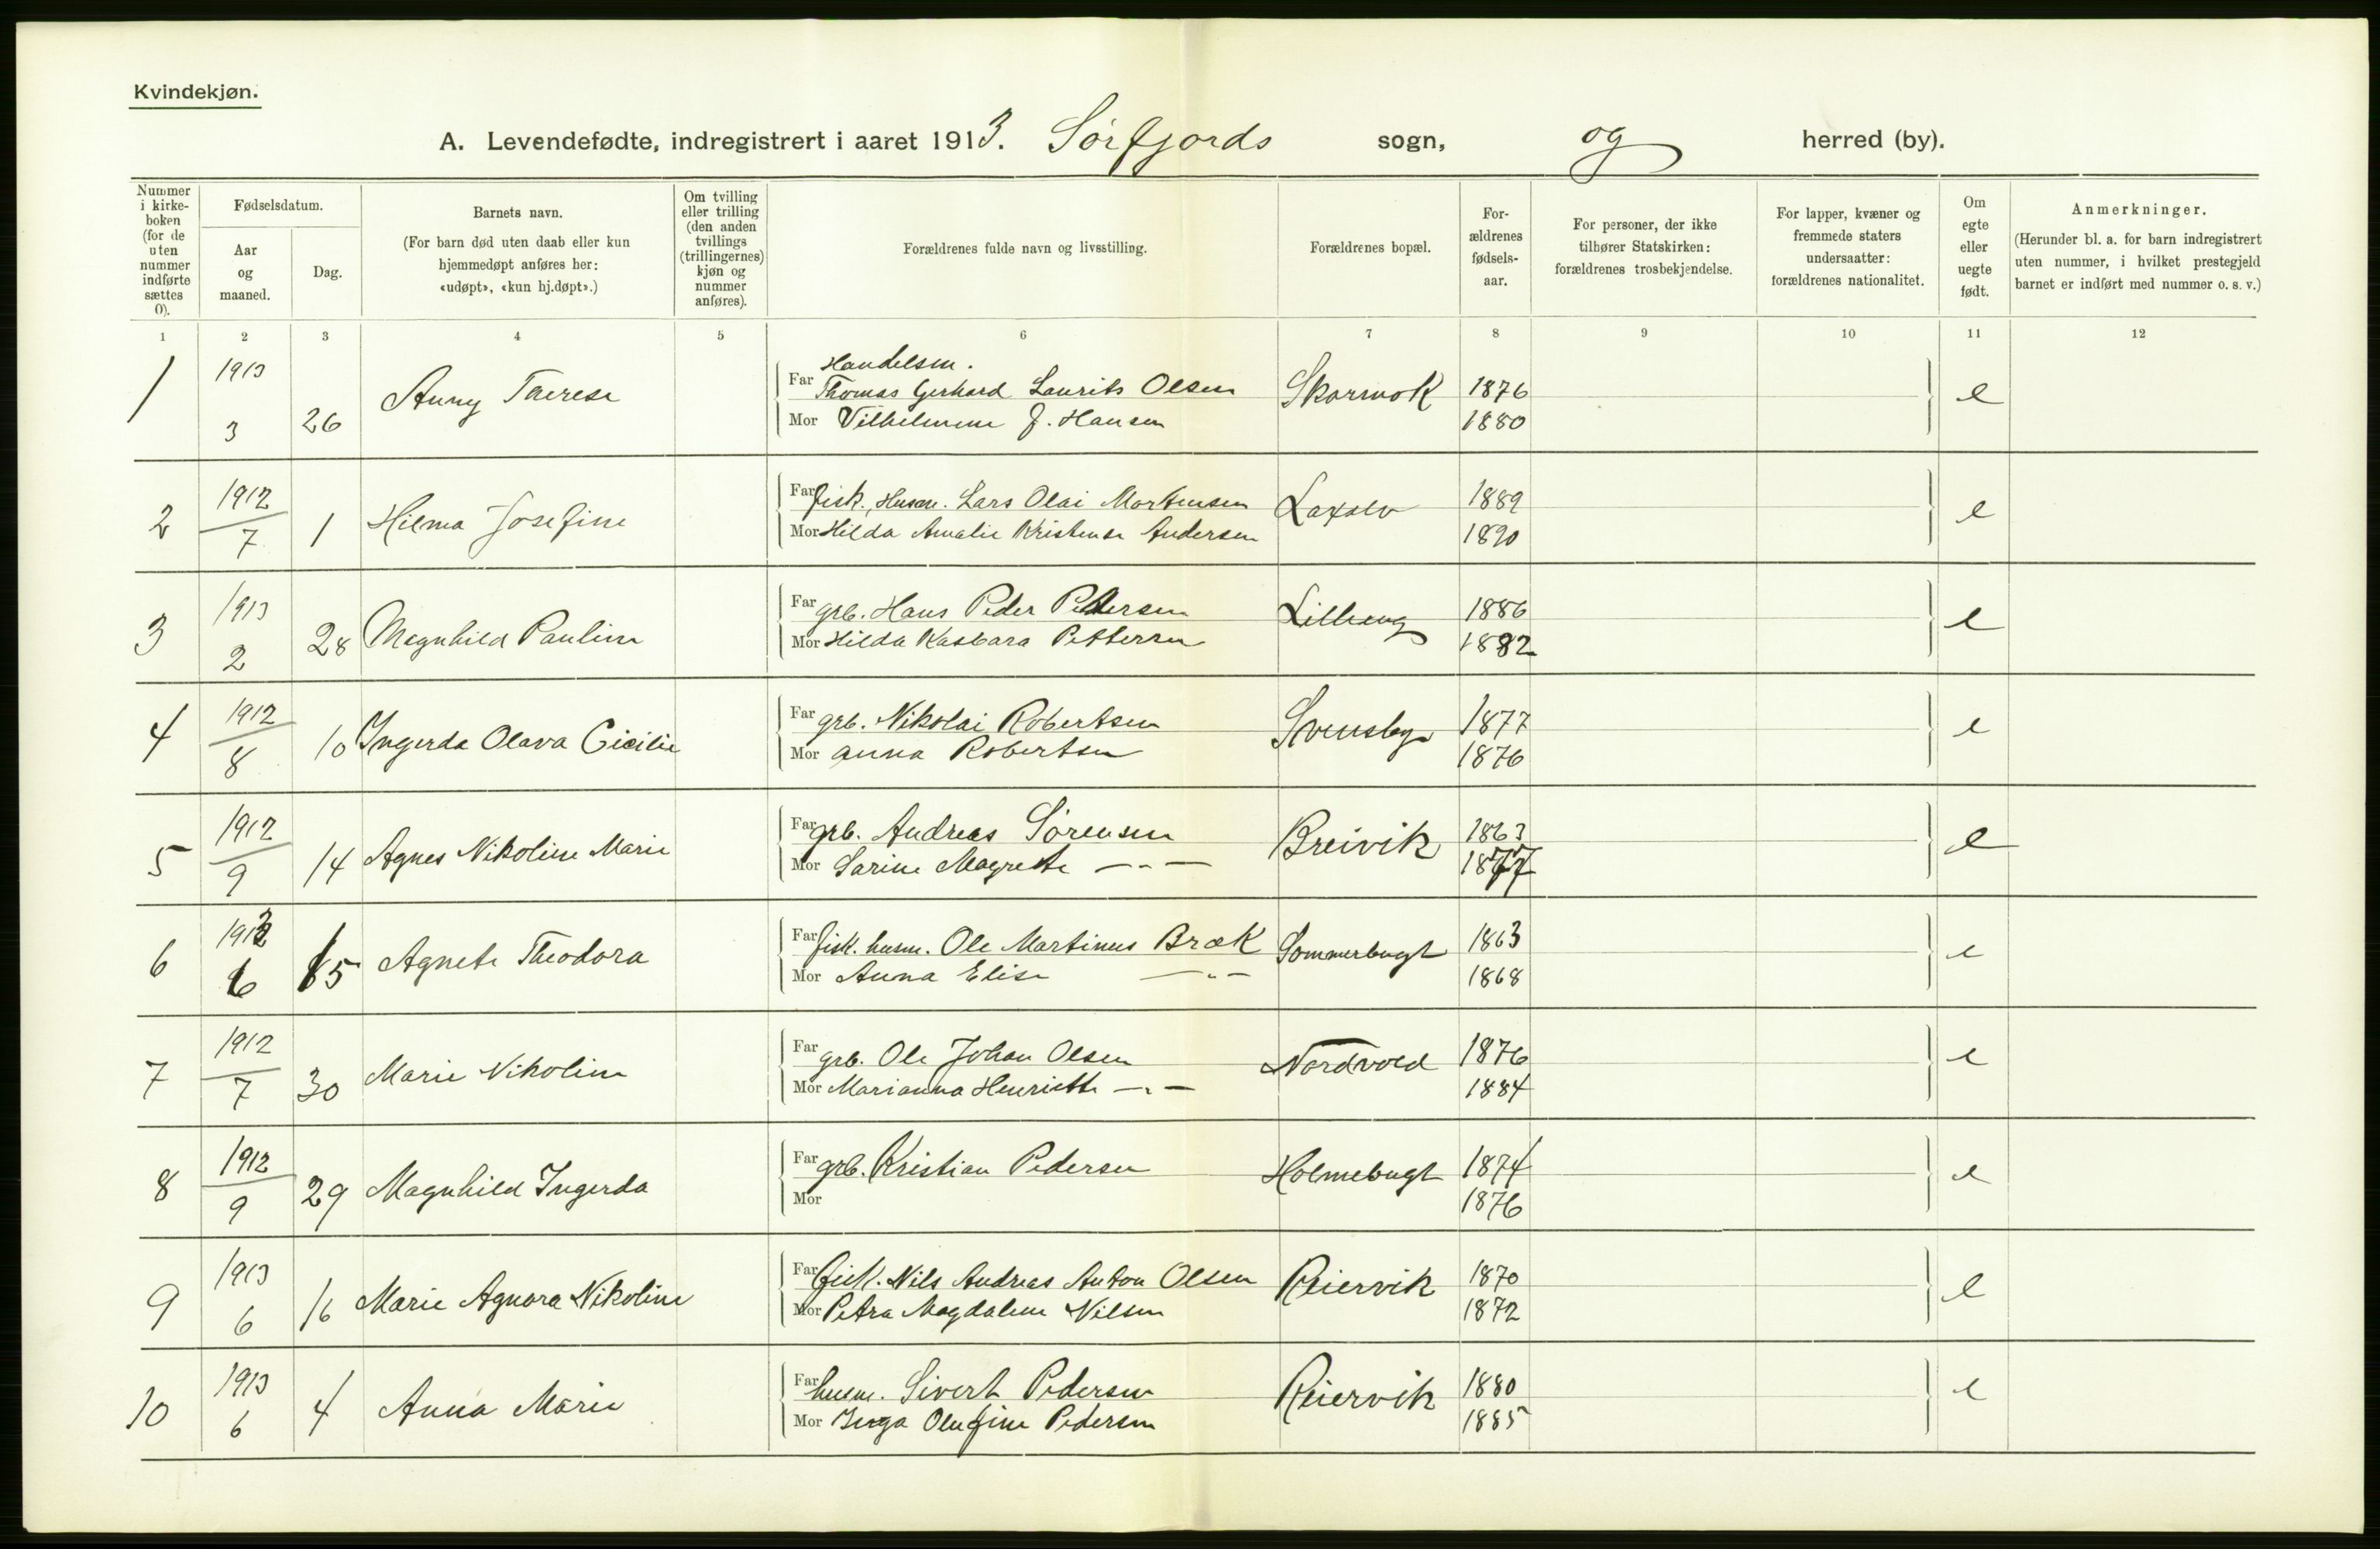 Kvindekjøn.
A. Levendefødte, indregistrert i aaret 1913. Sørfjords sogn, og herred (by).
Nummer i kirkeboken (for de uten nummer indførte sættes 0).
Fødselsdatum.
Aar og maaned.
Dag.
Barnets navn.
(For barn død uten daab eller kun hjemmedøpt anføres her: «udøpt», «kun hj.døpt».)
Om tvilling eller trilling (den anden tvillings (trillingernes) kjøn og nummer anføres).
Forældrenes fulde navn og livsstilling.
Forældrenes bopæl.
For-ældrenes fødsels-aar.
For personer, der ikke tilhører Statskirken: forældrenes trosbekjendelse.
For lapper, kvæner og fremmede staters undersaatter: forældrenes nationalitet.
Om egte eller uegte født.
Anmerkninger.
(Herunder bl. a. for barn indregistrert uten nummer, i hvilket prestegjeld barnet er indført med nummer o. s. v.)
1 2 3 4 5 6 7 8 9 10 11 12
1 1913 3 26 Anny Therese
Handelsm.
Far Thomas Gerhard Laurits Olsen Skarmok 1876 e
Mor Vilhelmine J. Hansen 1880
2 1912 7 1 Hilma Josefine
Far fisk., Husm. Lars Olai Mortensen Laxelv 1889 e
Mor Hilda Amalie Kristense Andersen 1890
3 1913 2 28 Magnhild Pauline
Far grb. Hans Peder Pedersen Lilleeng 1886 e
Mor Hilda Kasbara Pettersen 1882
4 1912 8 10 Ingerda Olava Cicilie
Far grb. Nikolai Robertsen Svensby 1877 e
Mor Anna Robertsen 1876
5 1912 9 14 Agnes Nikoline Marie
Far grb. Andreas Sørensen Breivik 1863 e
Mor Sarine Magrete —"— 1877
6 1913 6 15 Agnete Theodora
Far fisk. husm. Ole Martinus Bræk Sommerbugt 1863 e
Mor Anna Elise —"— 1868
7 1912 7 30 Marie Nikoline
Far grb. Ole Johan Olsen Nordvold 1876 e
Mor Marianna Henriette —"— 1884
8 1912 9 29 Magnhild Ingerda
Far grb. Kristian Pedersen Holmebugt 1874 e
Mor 1876
9 1913 6 16 Marie Agnora Nikoline
Far fisk. Nils Andreas Anton Olsen Reiervik 1870 e
Mor Petra Magdalene Nilsen 1872
10 1913 6 4 Anna Marie
Far husm. Sivert Pedersen Reiervik 1880 e
Mor Inga Olufine Pedersen 1885